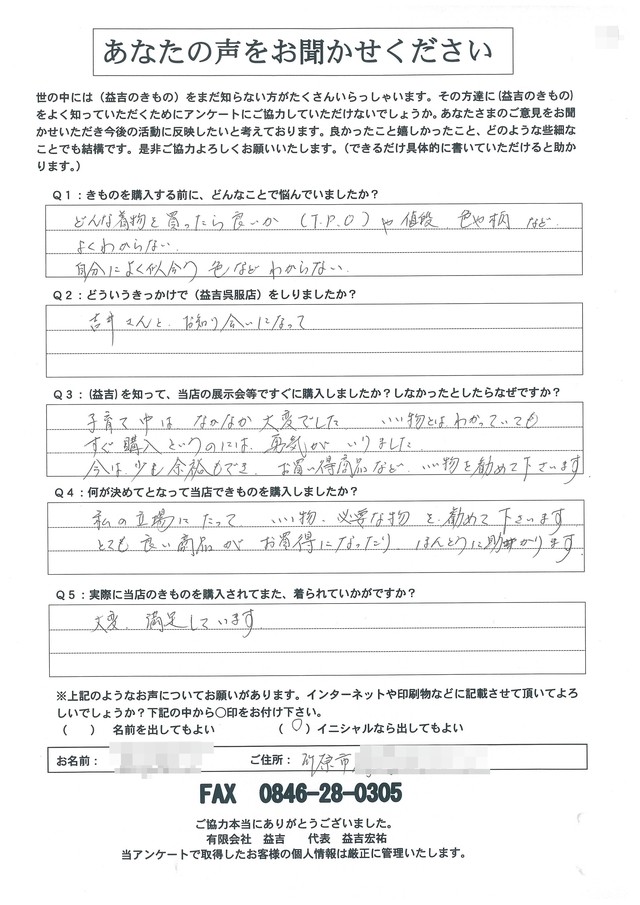 あなたの声をお聞かせください
世の中には（益吉のきもの）をまだ知らない方がたくさんいらっしゃいます。その方達に(益吉のきもの)
をよく知っていただくためにアンケートにご協力していただけないでしょうか。あなたさまのご意見をお聞
かせいただき今後の活動に反映したいと考えております。良かったこと嬉しかったこと、どのような些細な
ことでも結構です。是非ご協力よろしくお願いいたします。（できるだけ具体的に書いていただけると助か
ります。）
Ｑ１：きものを購入する前に、どんなことで悩んでいましたか？
どんな着物を買ったら良いか （T.P.O）や値段 色や柄 など
よくわからない.
自分によく似合う色などわからない.
Ｑ２：どういうきっかけで（益吉呉服店）をしりましたか？
吉井さんと、お知り合いになって
Ｑ３：(益吉)を知って、当店の展示会等ですぐに購入しましたか？しなかったとしたらなぜですか？
子育て中は なかなか大変でした いい物とはわかっていても
すぐ購入というのには、勇気が いりました
今は少も余裕もでき、お買い得商品など、いい物を勧めて下さいます
Ｑ４：何が決めてとなって当店できものを購入しましたか？
私の立場にたって いい物、必要な物を、勧めて下さいます
とても良い商品が お買得になったり、ほんとうに助かります
Ｑ５：実際に当店のきものを購入されてまた、着られていかがですか？
大変、満足しています
※上記のようなお声についてお願いがあります。インターネットや印刷物などに記載させて頂いてよろ
しいでしょうか？下記の中から〇印をお付け下さい。
（　）　名前を出してもよい　（〇）イニシャルなら出してもよい
お名前：　ご住所：　竹原市
FAX　0846-28-0305
ご協力本当にありがとうございました。
有限会社　益吉　　代表　益吉宏祐
当アンケートで取得したお客様の個人情報は厳正に管理いたします。